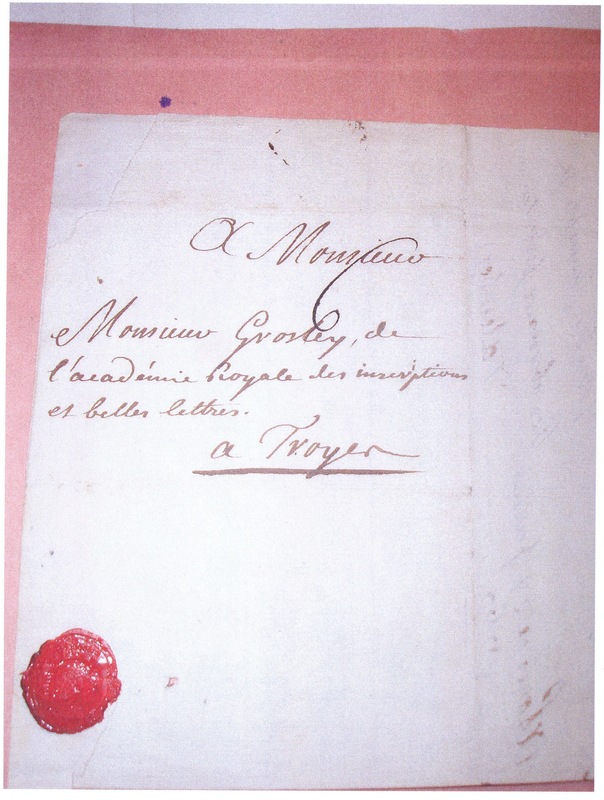 A Monsieur
Monsieur Grosley, de
l'académie Royale des inscriptions
et belles lettres.
a Troyes